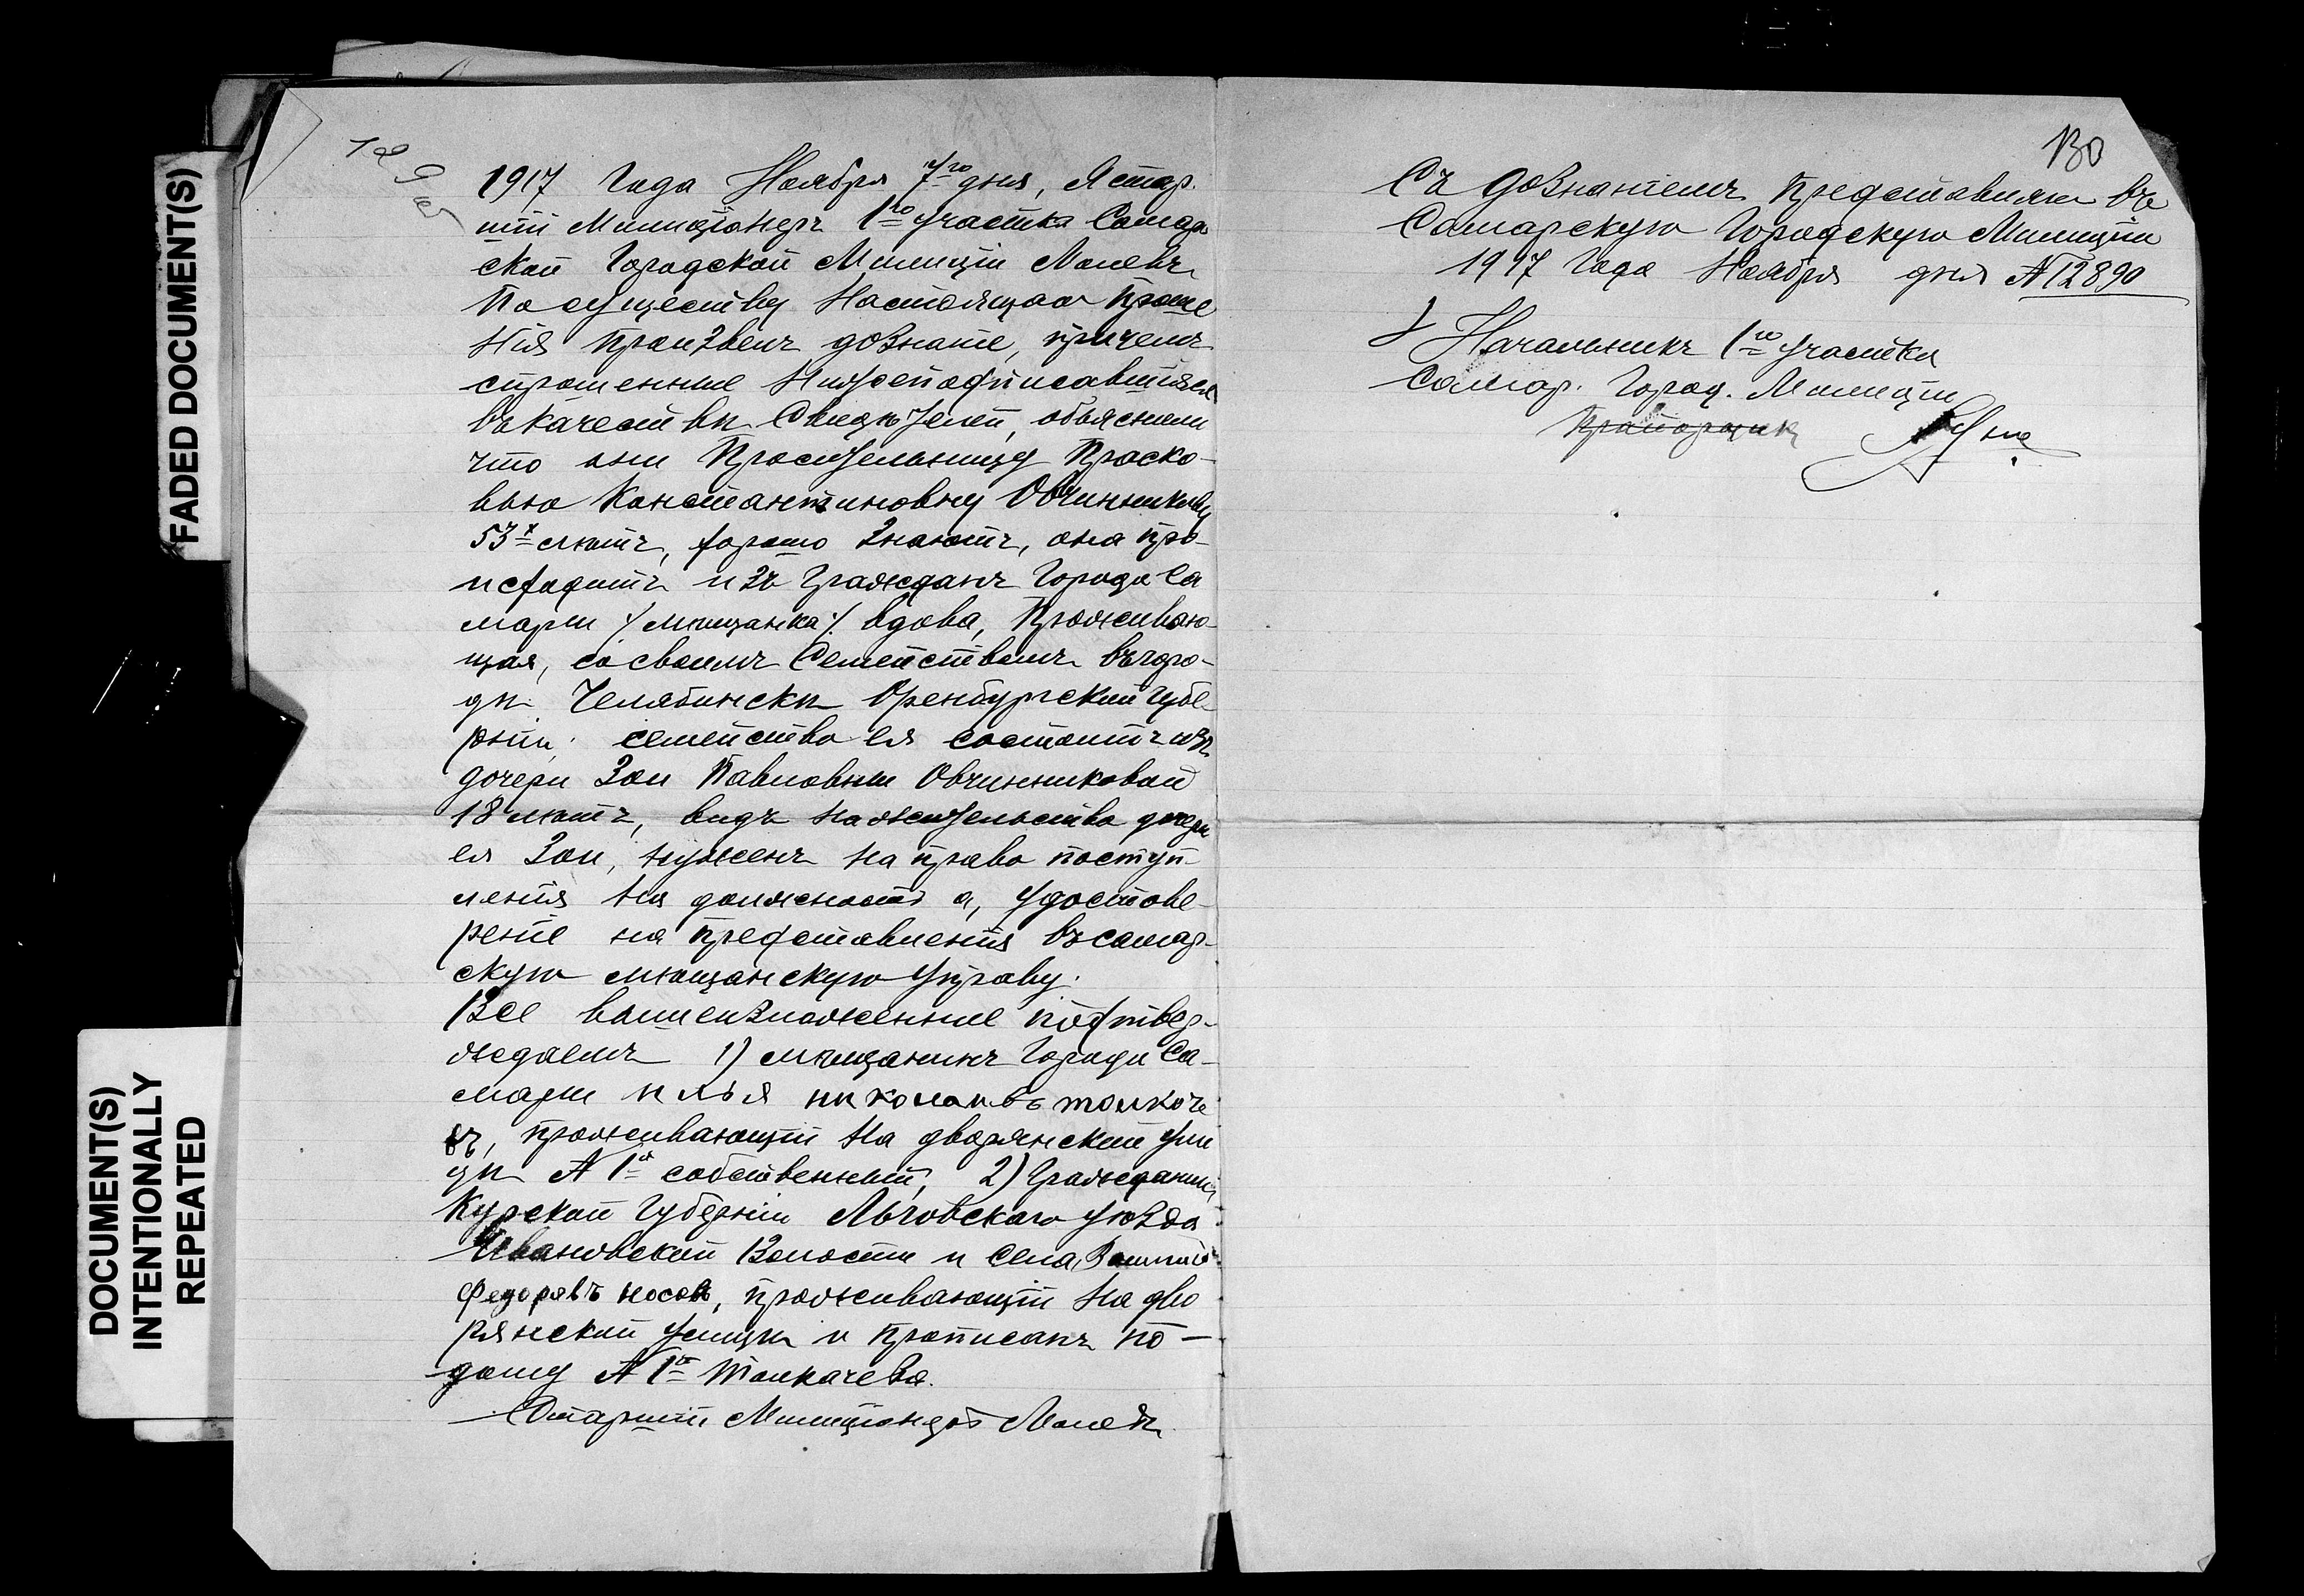 FADED DOCUMENT(S)
DOCUMENT(S)
INTENTIONALLY
REPEATED
1917 Года Ноября 7го дня, Я стар.
шій Милиціонеръ 1го участка Самар
ской Городской Милиціи Малевъ
По существу Настоящаго Проше
нія Произвелъ дознаніе, причемъ
спрошенные Нижеподписавшіяся
въ качествѣ Свидѣтелей, объяснили
что они Просительницу Праско-
вью Константиновну Овчинникову
53х лѣтъ, хорошо Знаютъ, она про-
исходитъ изъ Гражданъ Города Са
мары /мѣщанка/ вдова, Проживаю-
щая, со своимъ Семействомъ въ горо-
дѣ Челябинскѣ Оренбургской Губе-
рніи, семейство ея состоитъ изъ
дочери Зои Павловны Овчинниковой
18 лѣтъ, видъ на жительство дочери
ея Зои, нуженъ на право поступ-
ленія на должность а, удостове-
реніе на представленія въ самар-
скую мѣщанскую Управу.
Все вышеизложенные подтвер-
ждаемъ 1) мѣщанинъ Города Са-
мары илья николаивъ толкоче
въ, проживающій на дворянской ули
цѣ № 1й собственный, 2) Гражданинъ
Курской Губерніи Льговскаго уѣзда
Ивановской Волости и Села,
Федоравъ носов, проживающій на дво
рянской улицы и прописанъ по-
дому № 1й Толкачева.
Старшій Милиціонеръ Малевъ
130
Съ дознаніемъ Представляю въ
Самарскую Городскую Милицію
1917 Года Ноября дня № 12890
Начальникъ 1го участка
Самар. Город. Милиціи
Прапорщик